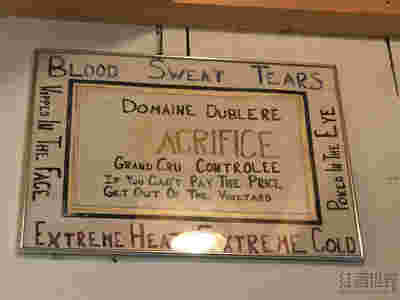 BLOOD SWEAT TEARS
DOMAINE DUBLERE
ACRIFICE
GRAND CRU CONTROLEE
IF YOU CAN'T PAY THE PRICE
GET OUT OF THE VINEYARD
IN THE FACE
POKED IN THE EYE
EXTREME HEAT EXTREME COLD